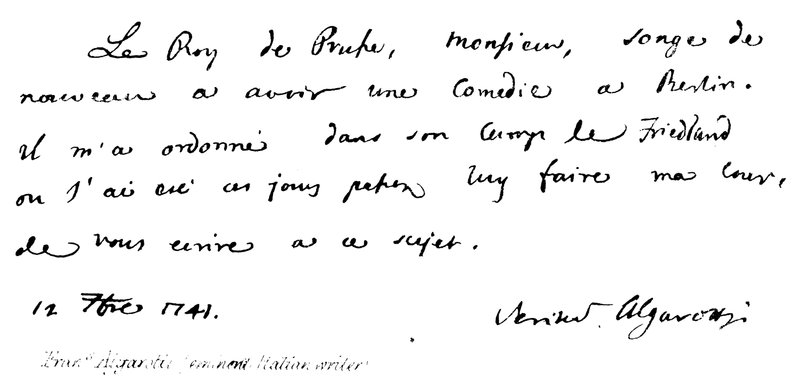 Le Roy de Prusse, monsieur, songe de
nouveau a avoir une Comedie a Berlin.
il m'a ordonné dans son Camp de Friedland
ou j'ai eté ces jours passez luy faire ma cour,
de vous ecrire a ce sujet.
12 7bre 1741. Algarotti
Fran.º Algarotti, eminent Italian writer